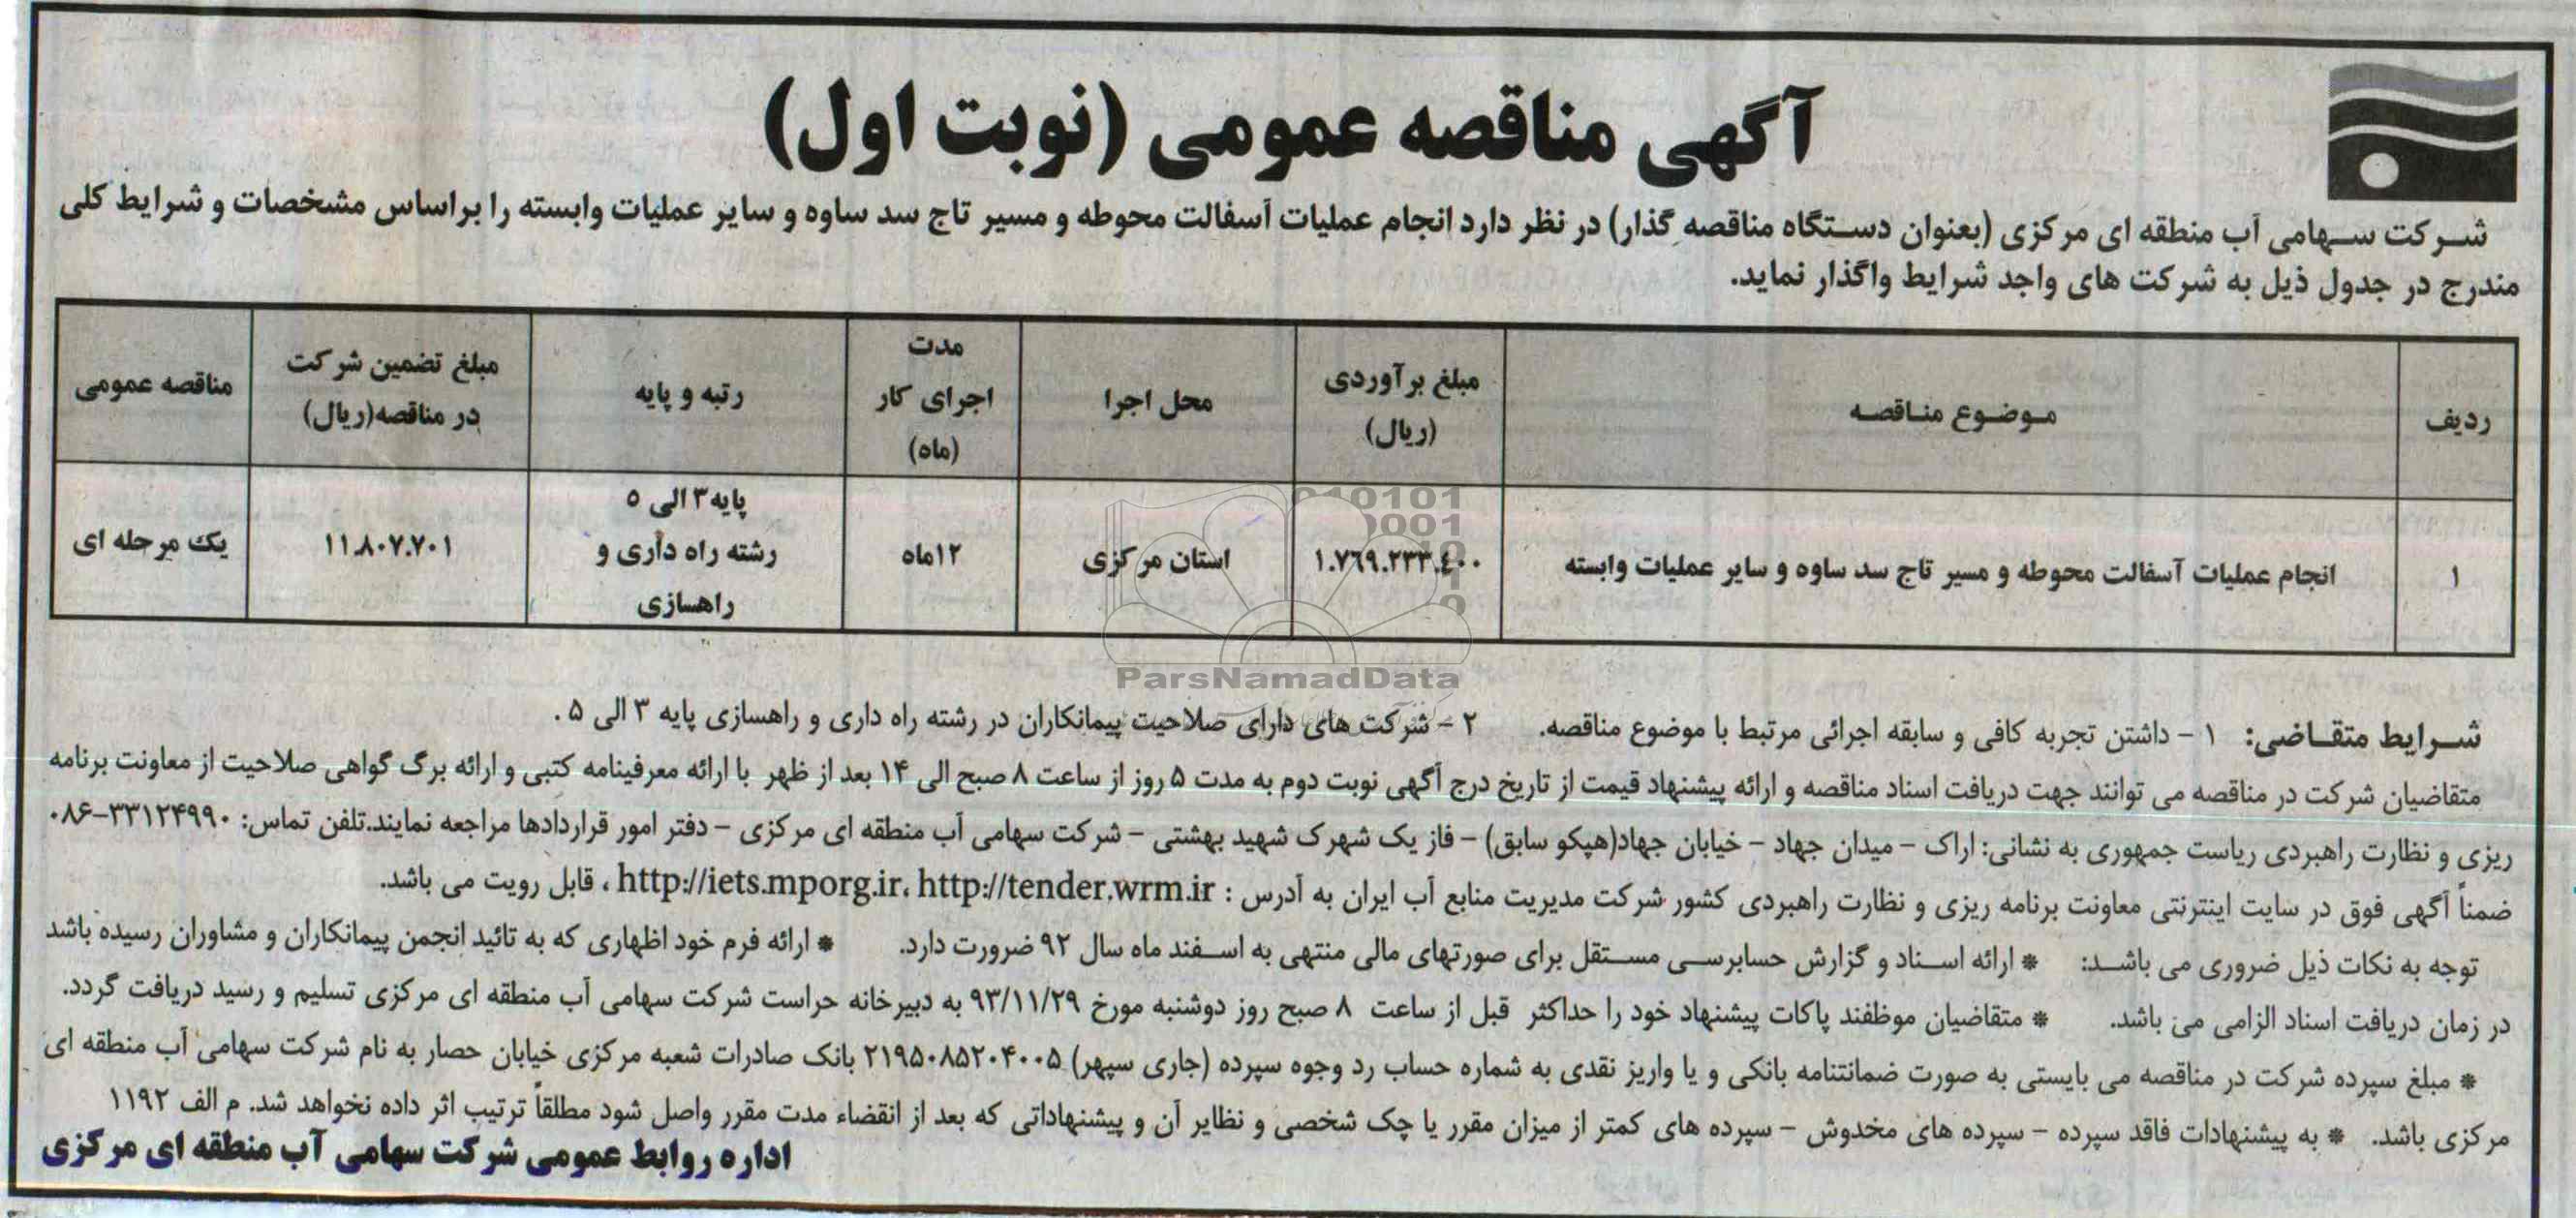 آگهی مناقصه عمومی (نوبت اول)
شرکت سهامی آب منطقه ای مرکزی (بعنوان دستگاه مناقصه گذار) در نظر دارد انجام عملیات آسفالت محوطه و مسیر تاج سد ساوه و سایر عملیات وابسته را براساس مشخصات و شرایط کلی
مندرج در جدول ذیل به شرکت های واجد شرایط واگذار نماید.
ردیف
موضوع مناقصه
مبلغ برآوردی
(ریال)
محل اجرا
مدت
اجرای کار
(ماه)
رتبه و پایه
مبلغ تضمین شرکت
در مناقصه(ریال)
مناقصه عمومی
۱
انجام عملیات آسفالت محوطه و مسیر تاج سد ساوه و سایر عملیات وابسته
۱.۷۶۹.۲۳۳.۴۰۰
استان مرکزی
۱۲ماه
پایه۳ الی ۵
رشته راه داری و
راهسازی
۱۱.۸۰۷.۷۰۱
یک مرحله ای
ParsNamadData
شرایط متقاضی: ۱ - داشتن تجربه کافی و سابقه اجرائی مرتبط با موضوع مناقصه. ۲ - شرکت های دارای صلاحیت پیمانکاران در رشته راه داری و راهسازی پایه ۳ الی ۵ .
متقاضیان شرکت در مناقصه می توانند جهت دریافت اسناد مناقصه و ارائه پیشنهاد قیمت از تاریخ درج آگهی نوبت دوم به مدت ۵ روز از ساعت ۸ صبح الی ۱۴ بعد از ظهر با ارائه معرفینامه کتبی و ارائه برگ گواهی صلاحیت از معاونت برنامه
ریزی و نظارت راهبردی ریاست جمهوری به نشانی: اراک - میدان جهاد - خیابان جهاد(هپکو سابق) - فاز یک شهرک شهید بهشتی - شرکت سهامی آب منطقه ای مرکزی - دفتر امور قراردادها مراجعه نمایند.تلفن تماس: ۳۳۱۲۴۹۹۰-۰۸۶
ضمناً آگهی فوق در سایت اینترنتی معاونت برنامه ریزی و نظارت راهبردی کشور شرکت مدیریت منابع آب ایران به آدرس : http://iets.mporg.ir، http://tender.wrm.ir ، قابل رویت می باشد.
توجه به نکات ذیل ضروری می باشد: * ارائه اسناد و گزارش حسابرسی مستقل برای صورتهای مالی منتهی به اسفند ماه سال ۹۲ ضرورت دارد. * ارائه فرم خود اظهاری که به تائید انجمن پیمانکاران و مشاوران رسیده باشد
در زمان دریافت اسناد الزامی می باشد. * متقاضیان موظفند پاکات پیشنهاد خود را حداکثر قبل از ساعت ۸ صبح روز دوشنبه مورخ ۹۳/۱۱/۲۹ به دبیرخانه حراست شرکت سهامی آب منطقه ای مرکزی تسلیم و رسید دریافت گردد.
* مبلغ سپرده شرکت در مناقصه می بایستی به صورت ضمانتنامه بانکی و یا واریز نقدی به شماره حساب رد وجوه سپرده (جاری سپهر) ۲۱۹۵۰۸۵۲۰۴۰۰۵ بانک صادرات شعبه مرکزی خیابان حصار به نام شرکت سهامی آب منطقه ای
مرکزی باشد. * به پیشنهادات فاقد سپرده - سپرده های مخدوش - سپرده های کمتر از میزان مقرر یا چک شخصی و نظایر آن و پیشنهاداتی که بعد از انقضاء مدت مقرر واصل شود مطلقاً ترتیب اثر داده نخواهد شد. م الف ۱۱۹۲
اداره روابط عمومی شرکت سهامی آب منطقه ای مرکزی